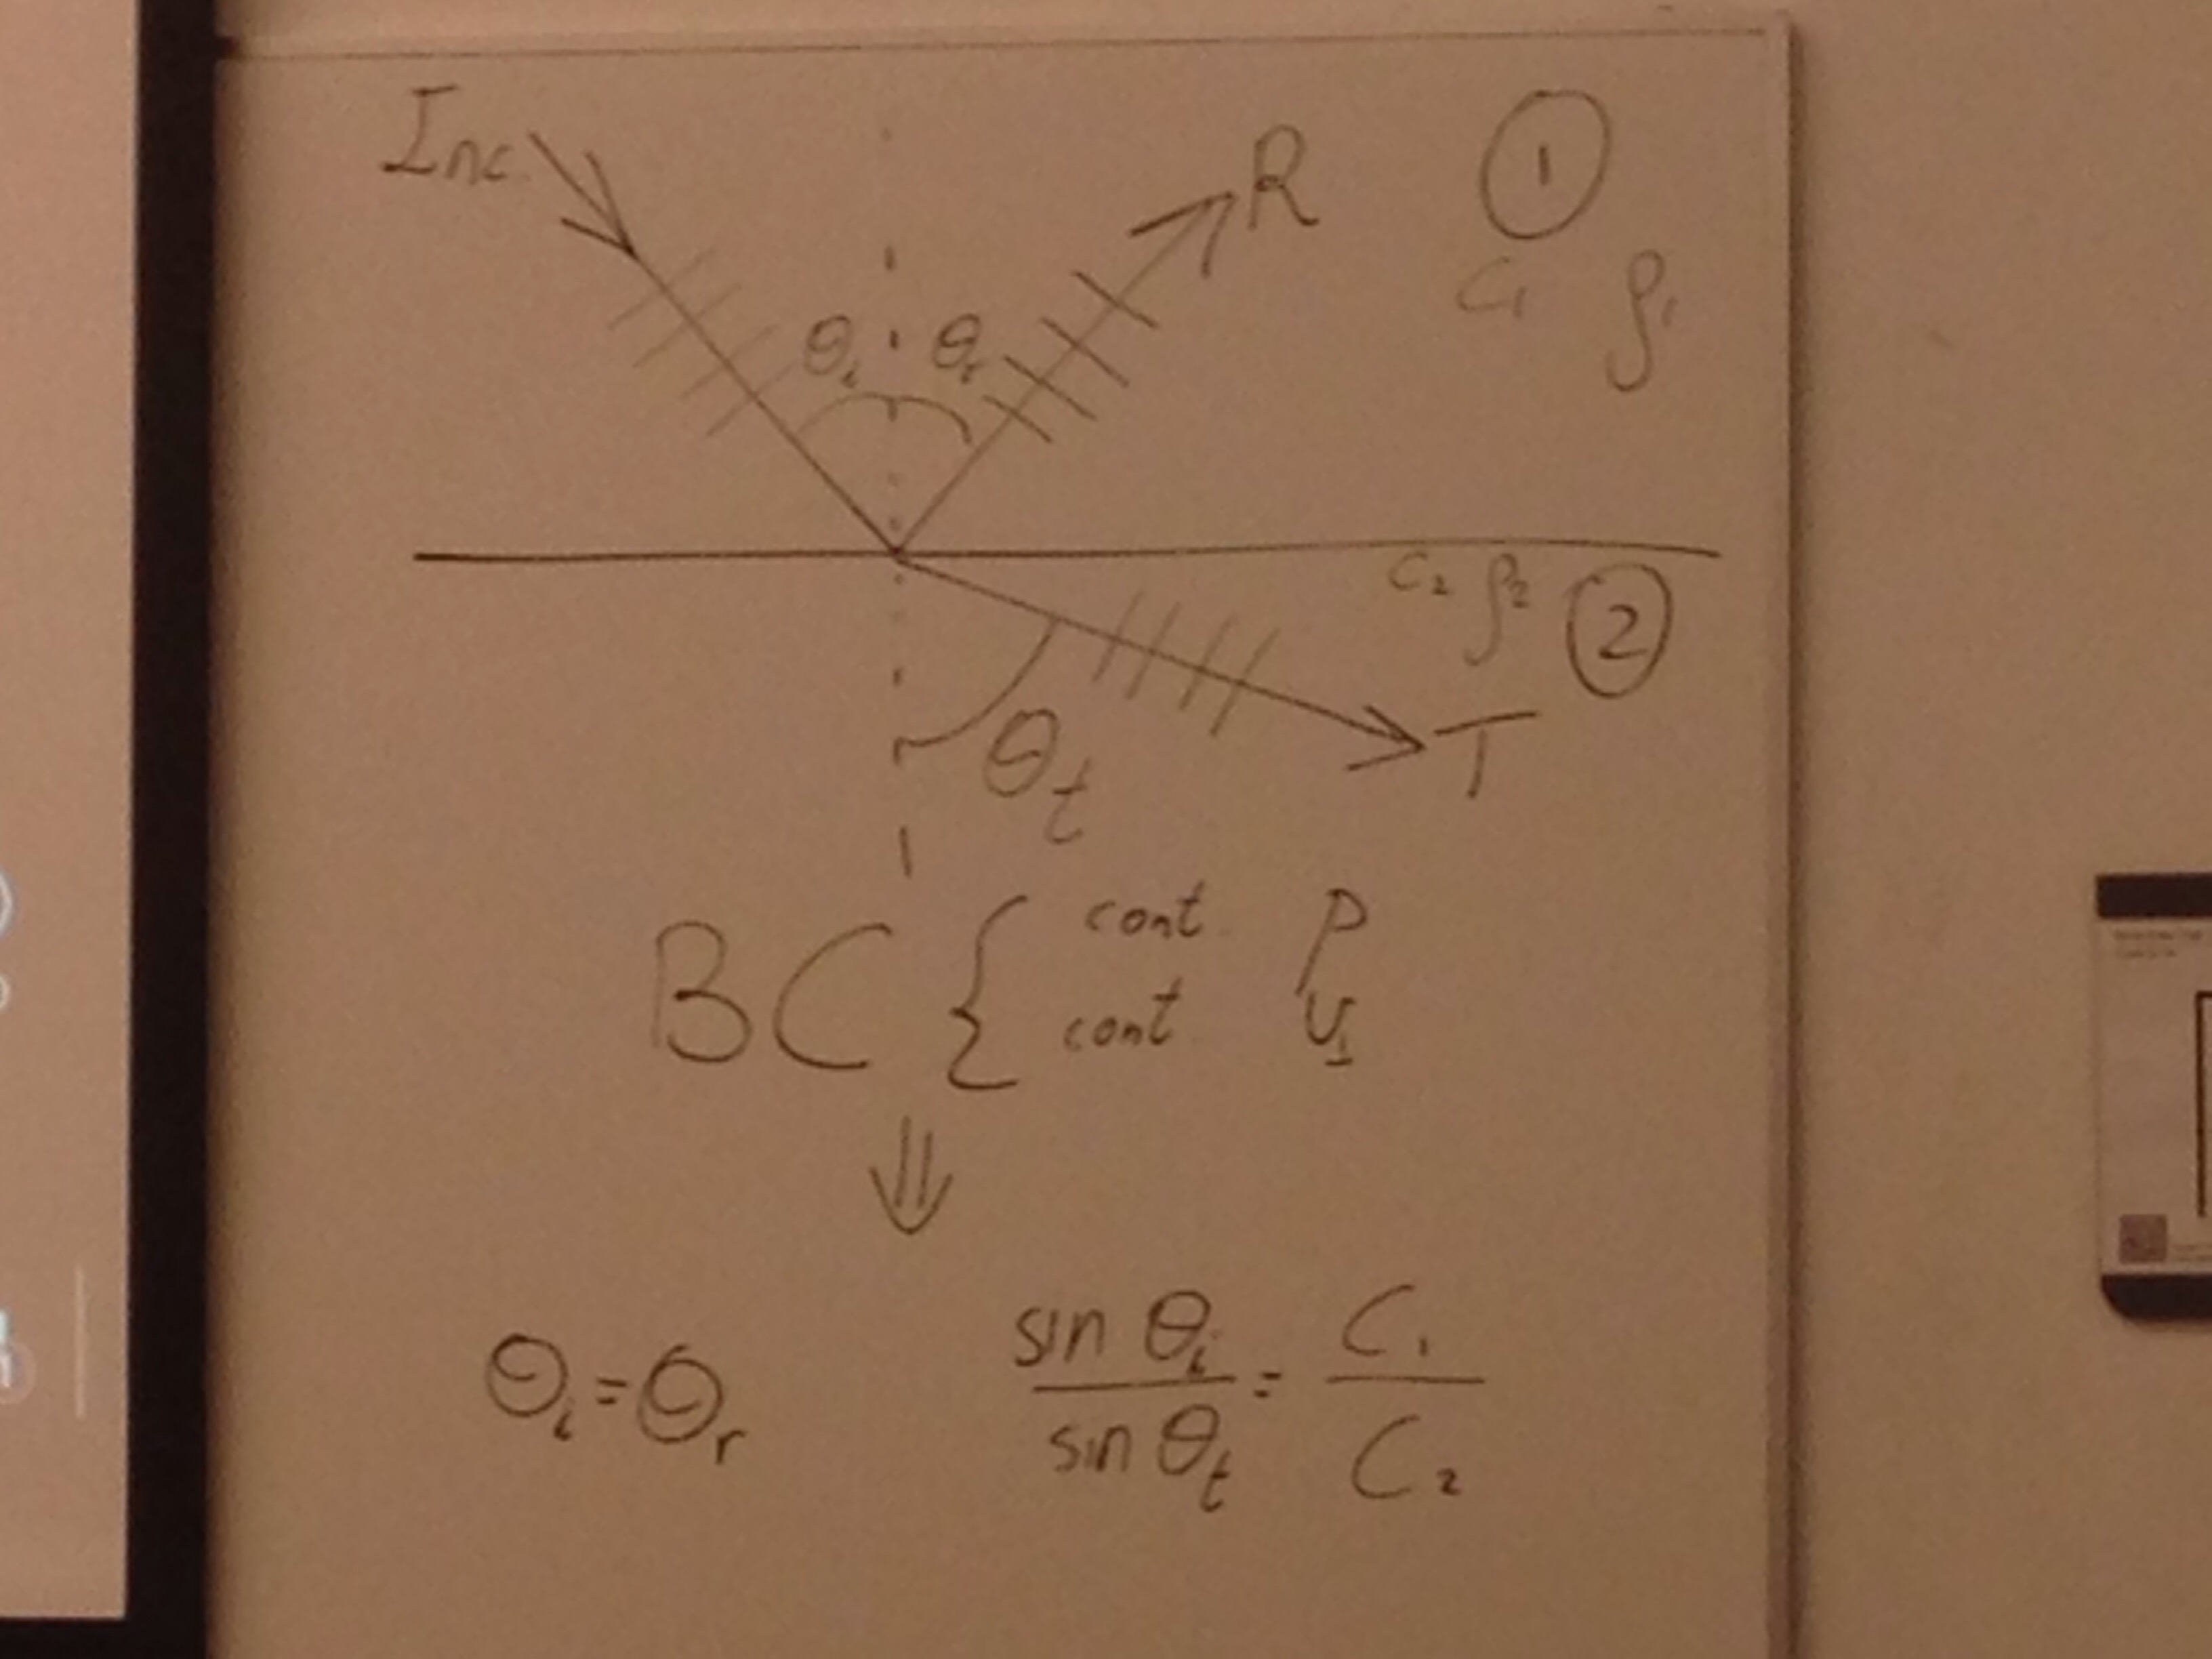 Inc.
R
①
θi
θr
C1
ρ1
C2
ρ2
②
θt
T
BC { cont. P
cont. U⊥
⇓
θi = θr
sin θi / sin θt = C1 / C2